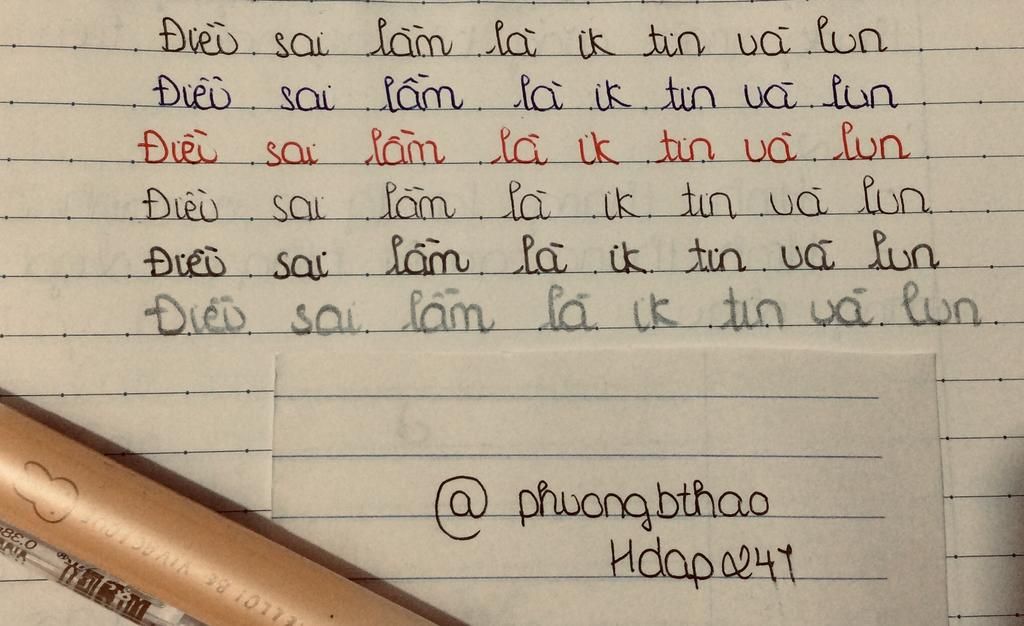 Điều sai lầm là ik tin và lun
Điều sai lầm là ik tin và lun
Điều sai lầm là ik tin và lun
Điều sai lầm là ik tin và lun
Điều sai lầm là ik tin và lun
Điều sai lầm là ik tin và lun
@ phuongbthao
Hdapa247
0.38